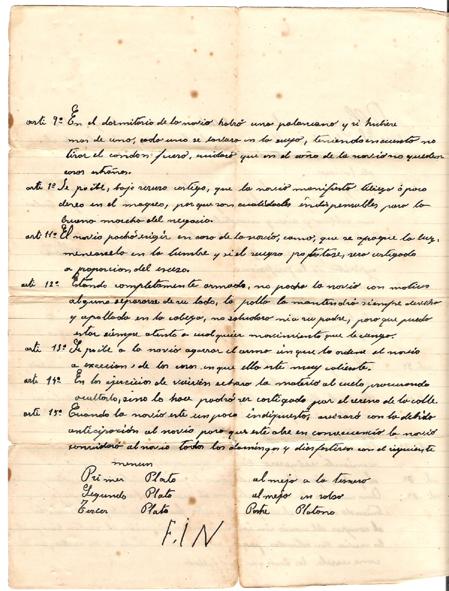 arti 9º En el dormitorio de la novia habrá una palancana y si hubiere
mas de uno, cada uno se lavara en la suya, teniendo en cuenta no
tirar el condon fuera, cuidará que en el coño de la novia no queden
cosas extrañas.
arti 1º Se pide, bajo severo castigo, que la novia manifieste
deseo en el magreo, por que son cualidades indispensables para la
buena marcha del negocio.
arti 11º El novio podrá exigir en casa de la novia, como, que se apague la luz,
menearsela en la lumbre y si el suegro protestase, sera castigado
a proporcion del exceso.
arti 12º Estando completamente armado, no podra la novia con motivo
alguno separarse de su lado, la polla la mantendrá siempre derecha
y apoyada en la cabeza, no saludara ni a su padre, para que pueda
estar siempre atenta a cualquier movimiento que le
arti 13º Se pide a la novia agarrar el arma sin que lo ordene el novio
a excecion, de los casos en que ella este muy caliente.
arti 14º En los ejercicios de echara la materia al suelo procurando
ocultarlo, sino lo hace podrá ser castigado por el sereno de la calle
arti 15º Cuando la novia este un poco indispuesta, avisará con la debida
anticipación al novio para que este
convidará al novio todos los domingos y dias festivos con el siguiente
menun
Primer Plato almejo a la ternera
Segundo Plato almejo en
Tercer Plato Postre Platano
FIN